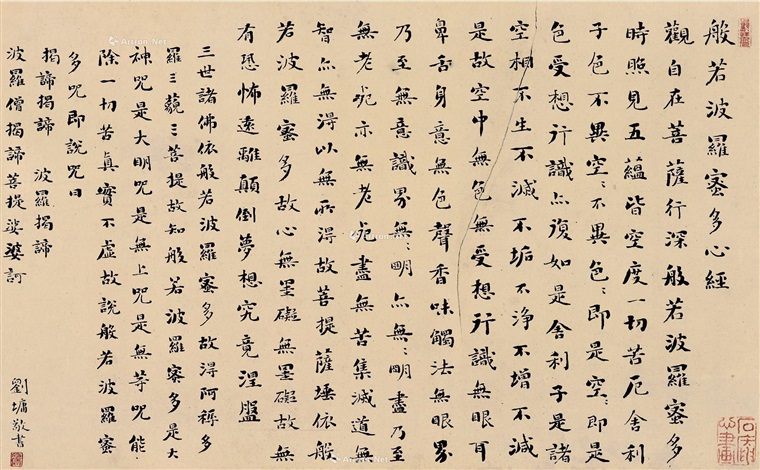 般若波羅蜜多心經
觀自在菩薩行深般若波羅蜜多
時照見五蘊皆空度一切苦厄舍利
子色不異空〻不異色〻即是空〻即是
色受想行識亦復如是舍利子是諸
空相不生不滅不垢不淨不增不減
是故空中無色無受想行識無眼耳
鼻舌身意無色聲香味觸法無眼界
乃至無意識界無〻明亦無〻明盡乃至
無老死亦無老死盡無苦集滅道無
智亦無得以無所得故菩提薩埵依般
若波羅蜜多故心無罣礙無罣礙故無
有恐怖遠離顛倒夢想究竟涅槃
三世諸佛依般若波羅蜜多故得阿耨多
羅三藐三菩提故知般若波羅蜜多是大
神咒是大明咒是無上咒是無等咒能
除一切苦真實不虛故說般若波羅蜜
多咒即說咒曰
揭諦揭諦 波羅揭諦
波羅僧揭諦菩提娑婆訶
劉墉敬書